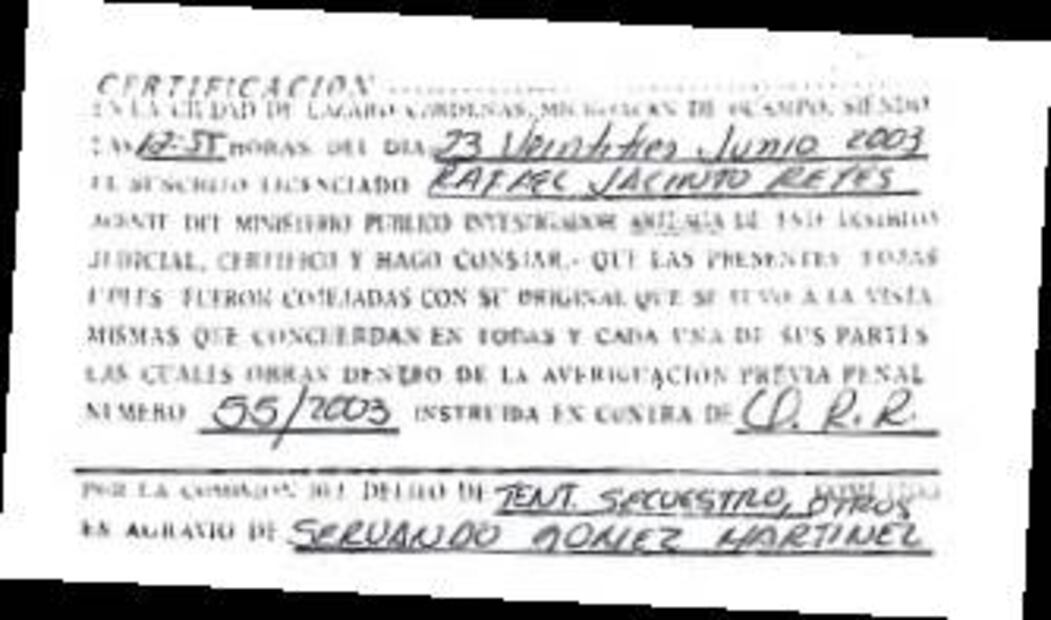 CERTIFICACION
EN LA CIUDAD DE LAZARO CARDENAS, MICHOACAN DE OCAMPO, SIENDO
LAS 12-55 HORAS DEL DIA 23 Veintitres Junio 2003
EL SUSCRITO LICENCIADO RAFAEL JACINTO REYES
AGENTE DEL MINISTERIO PUBLICO INVESTIGADOR DE ESTE DISTRITO
JUDICIAL, CERTIFICO Y HAGO CONSTAR.- QUE LAS PRESENTES FOJAS
UTILES FUERON COTEJADAS CON SU ORIGINAL QUE SE TUVO A LA VISTA
MISMAS QUE CONCUERDAN EN TODAS Y CADA UNA DE SUS PARTES
LAS CUALES OBRAN DENTRO DE LA AVERIGUACION PREVIA PENAL
NUMERO 55/2003 INSTRUIDA EN CONTRA DE R. R.
POR LA COMISION DEL DELITO DE TENT. SECUESTRO, OTROS
EN AGRAVIO DE SERVANDO GOMEZ MARTINEZ